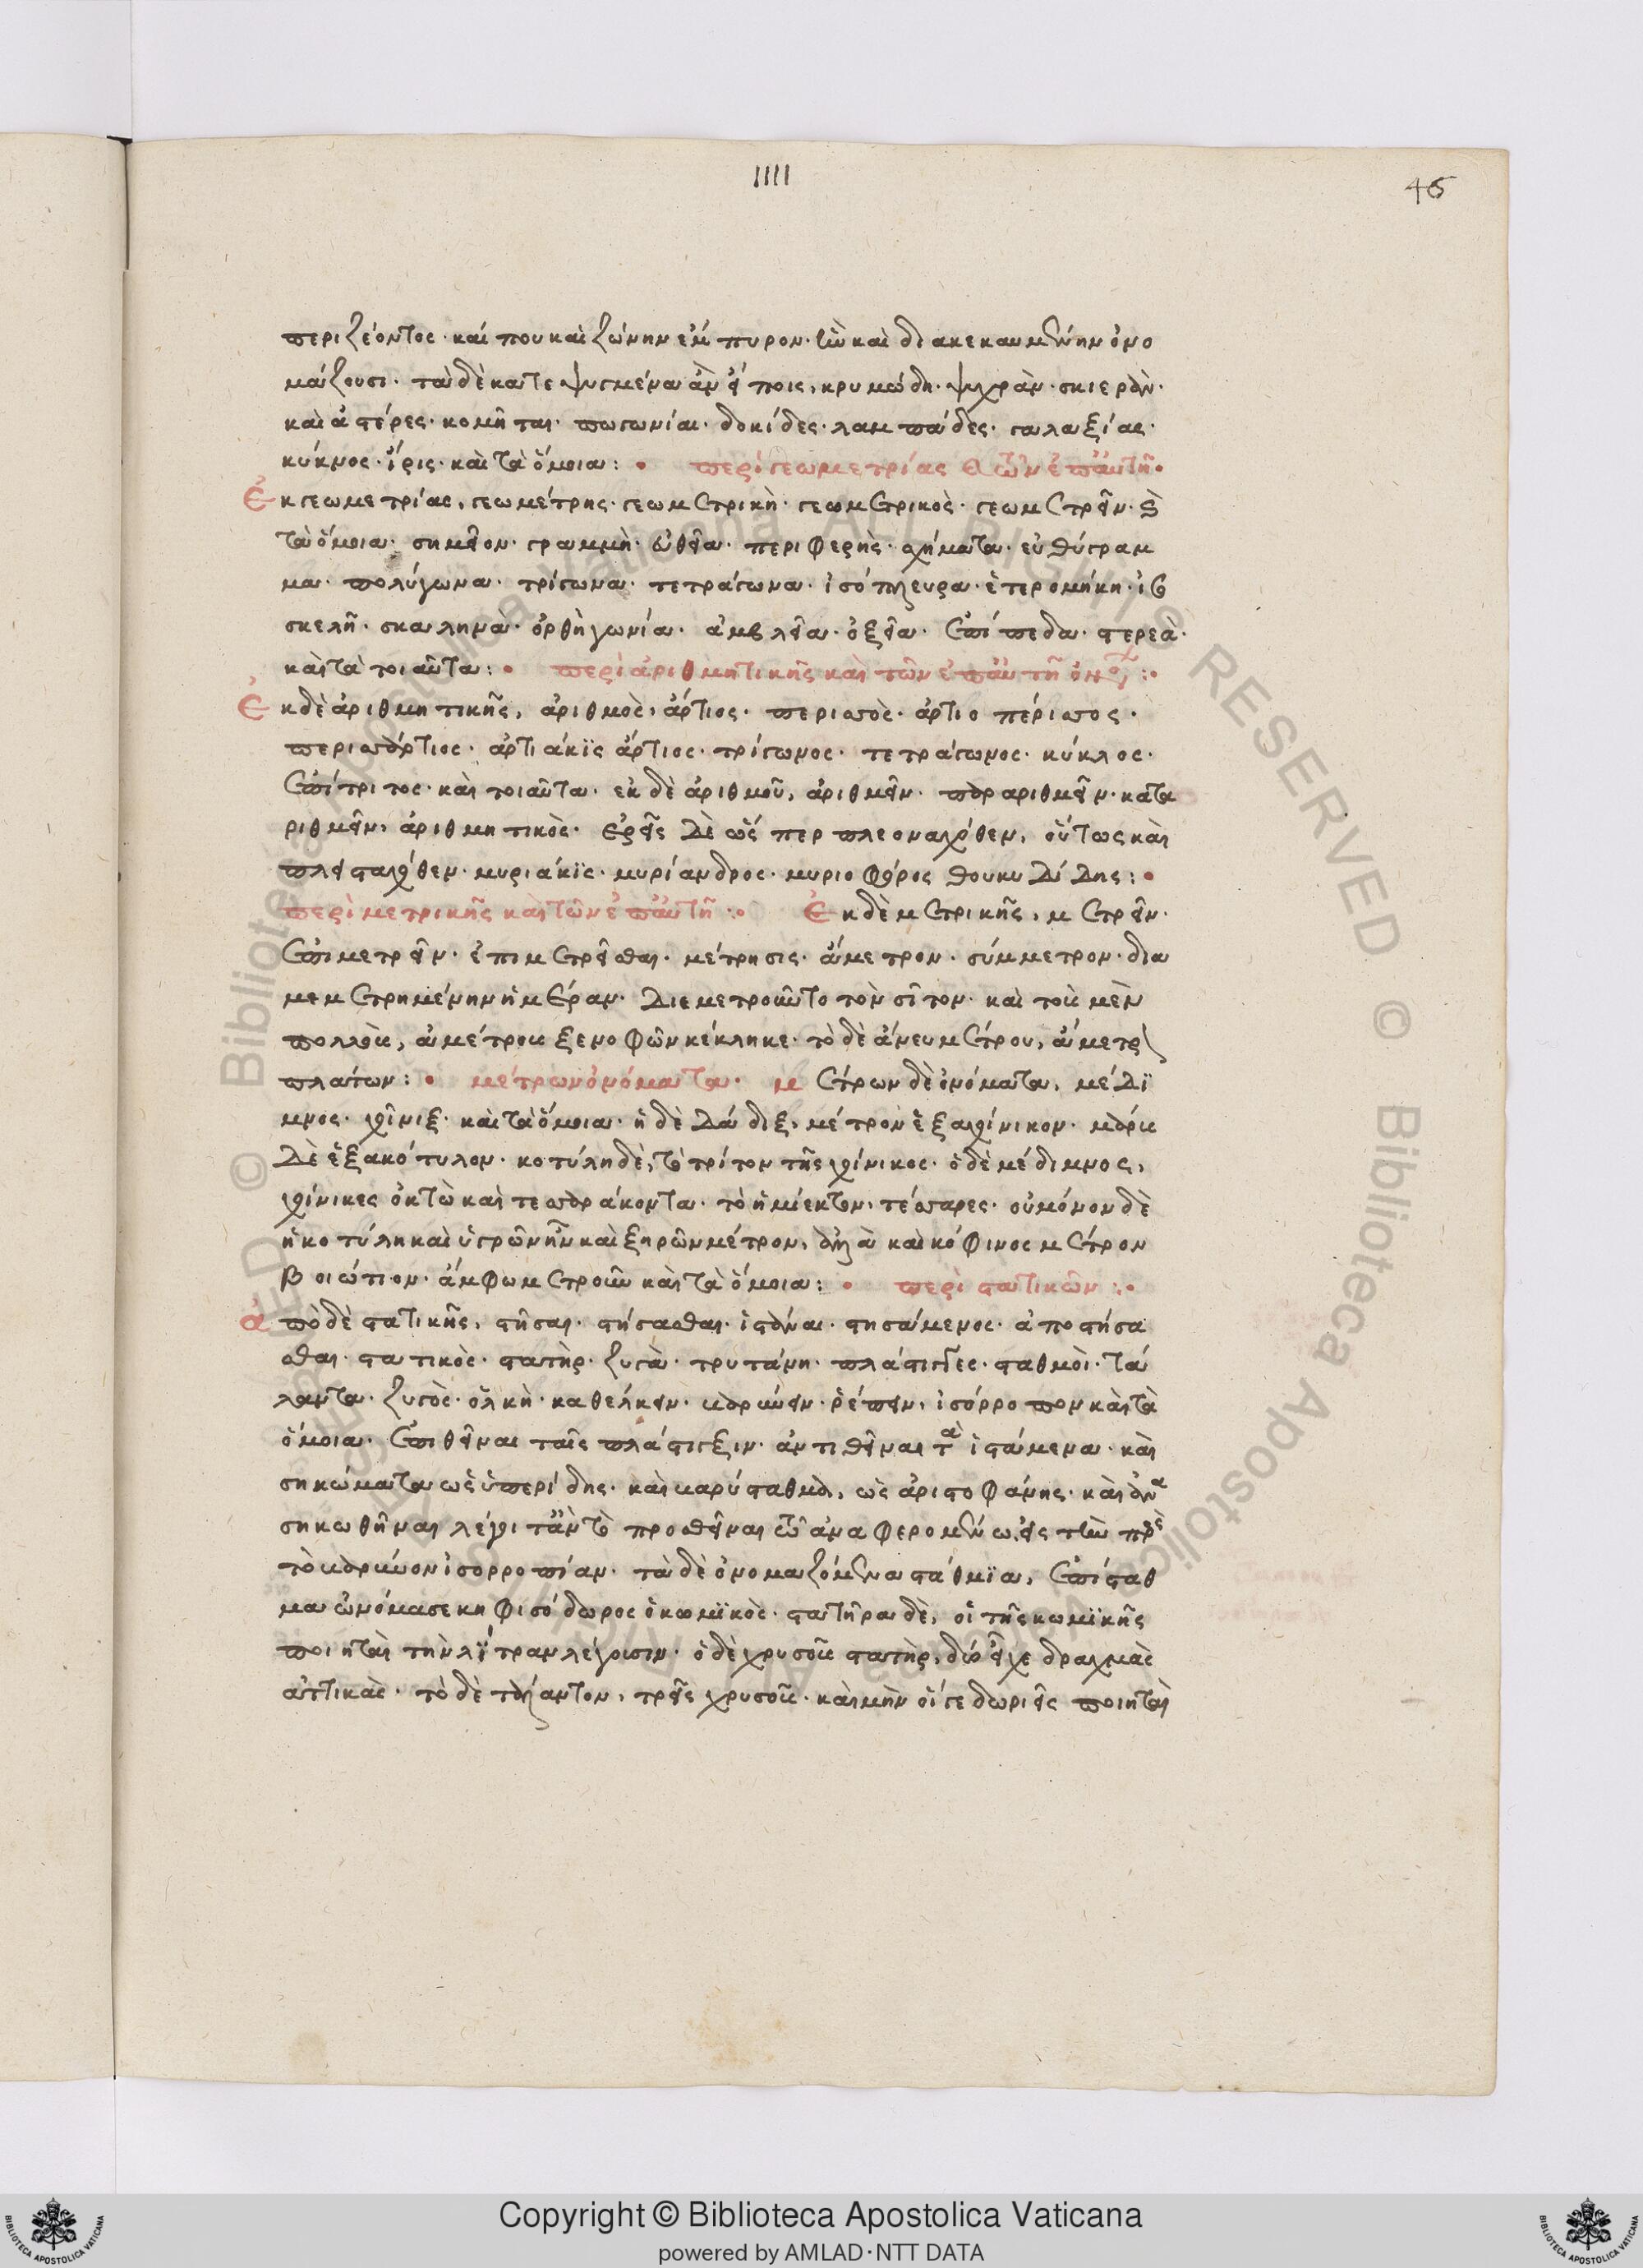 IIII
46
περιζέοντος· καί που καὶ ζώνην ἐμπυρον· ἣν καὶ διακεκαυμένην ὀνο
μάζουσι· τὰ δὲ κατεψυγμένα ἂν εἴποις, κρυμώδη· ψυχρὰν· σκιερὰν·
καὶ ἀστέρες· κομῆται· πωγωνίαι· δοκίδες· λαμπάδες· γαλαξίας·
κύκνος· ἶρις· καὶ τὰ ὅμοια: • περὶ γεωμετρίας
Ἐκ γεωμετρίας, γεωμέτρης· γεωμετρικὴ· γεωμετρικὸς· γεωμετρεῖν· καὶ
τὰ ὅμοια· σημεῖον· γραμμὴ· εὐθεῖα· περιφερὴς· σχήματα· εὐθύγραμ
μα· πολύγωνα· τρίγωνα· τετράγωνα· ἰσόπλευρα· ἑτερομήκη· ἰσο
σκελῆ· σκαληνὰ· ὀρθὴ γωνία· ἀμβλεῖα· ὀξεῖα· ἐπίπεδα· στερεὰ·
καὶ τὰ τοιαῦτα: • περὶ ἀριθμητικῆς καὶ τῶν ἐπ' αὐτῆ ὀνομάτων :•
Ἐκ δὲ ἀριθμητικῆς, ἀριθμὸς, ἄρτιος· περισσὸς· ἀρτιοπέρισσος·
περισσάρτιος· ἀρτιάκις ἄρτιος· τρίγωνος· τετράγωνος· κύκλος·
ἐπίτριτος· καὶ τοιαῦτα· ἐκ δὲ ἀριθμοῦ, ἀριθμεῖν· παραριθμεῖν· κατα
ριθμεῖν, ἀριθμητικὸς· ἐρεῖς δὲ ὥσπερ πλεοναχόθεν, οὕτως καὶ
πλεισταχόθεν· μυριάκις· μυρίανδρος· μυριοφόρος θουκυδίδης: •
περὶ μετρικῆς καὶ τῶν ἐπ' αὐτῆ :• Ἐκ δὲ μετρικῆς, μετρεῖν·
ἐπιμετρεῖν· ἐπιμετρεῖσθαι· μέτρησις· ἄμετρον· σύμμετρον· δια
μεμετρημένην ἡμέραν· διεμετροῦντο τὸν σῖτον· καὶ τοὺς μὲν
πολλοὺς, ἀμέτρους ξενοφῶν κέκληκε· τὸ δὲ ἄνευ μέτρου, ἄμετρον
πλάτων: • μέτρων ὀνόματα· μέτρων δὲ ὀνόματα, μέδι
μνος· χοῖνιξ· καὶ τὰ ὅμοια· ἡ δὲ δάδιξ, μέτρον ἑξαχοίνικον· μάρις
δὲ ἑξακότυλον· κοτύλη δὲ, τὸ τρίτον τῆς χοίνικος· ὁ δὲ μέδιμνος,
χοίνικες ὀκτὼ καὶ τεσσαράκοντα· τὸ ἡμίεκτον, τέσσαρες· οὐ μόνον δὲ
ἡ κοτύλη καὶ ὑγρῶν ἦν καὶ ξηρῶν μέτρον, ἀλλὰ καὶ κόφινος μέτρον
βοιώτιον· ἄμφω μετροῦν καὶ τὰ ὅμοια: • περὶ στατικῶν :•
ἀπὸ δὲ στατικῆς, στῆσαι· στήσασθαι· ἱστάναι· στησάμενος· ἀποστήσα
σθαι· στατικὸς· στατὴρ· ζυγὰ· τρυτάνη· πλάστιγγες· σταθμοὶ· τά
λαντα· ζυγὸς· ὁλκὴ· καθέλκειν· ῥέπειν, ἰσόρροπον καὶ τὰ
ὅμοια· ἐπιθεῖναι ταῖς πλάστιγξιν· ἀντιθεῖναι τὰ ἱστάμενα· καὶ
σηκώματα ὡς ὑπερίδης· καὶ, ὡς ἀριστοφάνης· καὶ
σηκωθῆναι προσθεῖναι ἀναφερομένω, εἰς τὴν πρὸς
τὸ ἰσορροπίαν· τὰ δὲ ὀνομαζόμενα στάθμια, ἐπίσταθ
μα ὠνόμασε κηφισόδωρος ὁ κωμικὸς· στατῆρα δὲ, οἱ τῆς κωμικῆς
ποιηταὶ τὴν λίτραν λέγουσιν· ὁ δὲ χρυσοῦς στατὴρ, δύο εἶχε δραχμὰς
ἀττικὰς· τὸ δὲ τάλαντον, τρεῖς χρυσοῦς· καὶ μὴν οἵ γε δωριεῖς ποιηταὶ
Copyright © Biblioteca Apostolica Vaticana
powered by AMLAD·NTT DATA